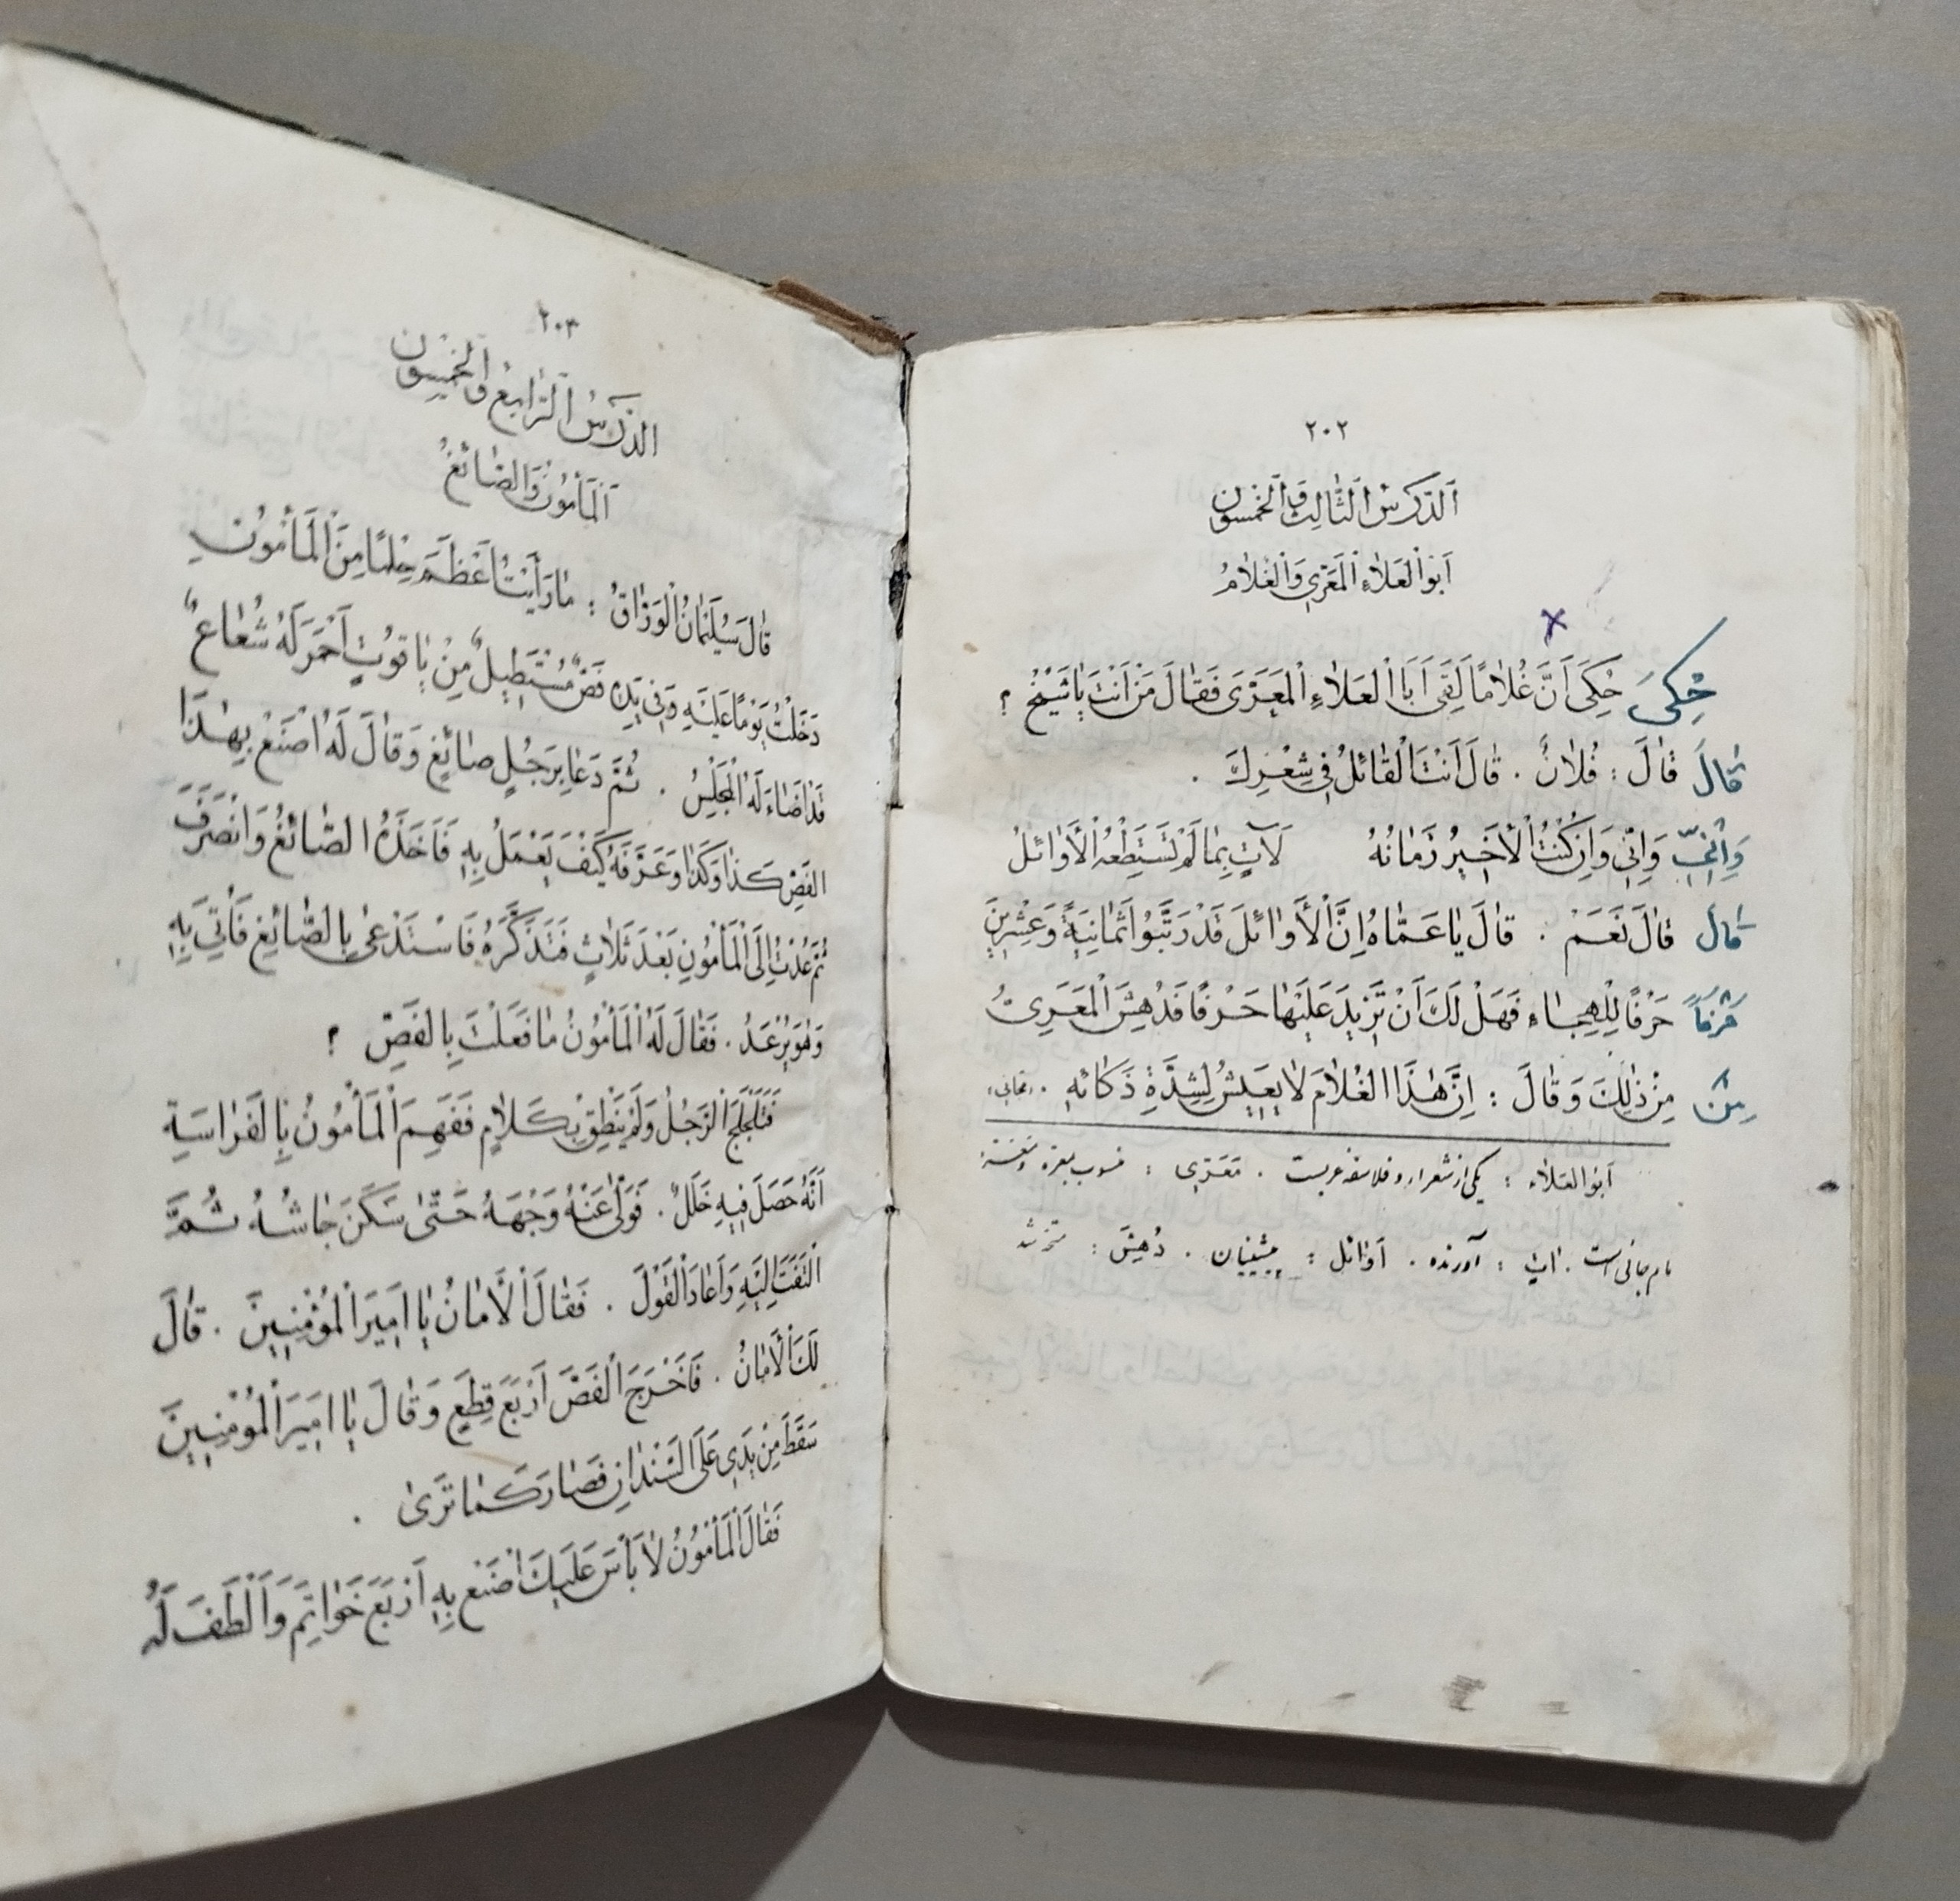 ٢٠٢
اَلدَّرْسُ الثَّالِثُ وَالْخَمْسُونَ
اَبُو الْعَلَاءِ الْمَعَرِّي وَالْغُلَامُ
حُكِيَ حُكِيَ اَنَّ غُلَامًا لَقِيَ اَبَا الْعَلَاءِ الْمَعَرِّيَ فَقَالَ مَنْ اَنْتَ يَا شَيْخُ ؟
قَالَ قَالَ : فُلَانٌ . قَالَ اَنْتَ الْقَائِلُ فِي شِعْرِكَ .
وَاِنِّي وَاِنِّي وَاِنْ كُنْتُ الْأَخِيرَ زَمَانُهُ لَآتٍ بِمَا لَمْ تَسْتَطِعْهُ الْأَوَائِلُ
قَالَ قَالَ نَعَمْ . قَالَ يَا عَمَّاهُ اِنَّ الْأَوَائِلَ قَدْ رَتَّبُوا ثَمَانِيَةً وَعِشْرِينَ
حَرْفًا حَرْفًا لِلْهِجَاءِ فَهَلْ لَكَ اَنْ تَزِيدَ عَلَيْهَا حَرْفًا فَدُهِشَ الْمَعَرِيُّ
مِنْ مِنْ ذٰلِكَ وَ قَالَ : اِنَّ هٰذَا الْغُلَامَ لَا يَعِيشُ لِشِدَّةِ ذَكَائِهِ .
اَبُو الْعَلَاء : یکی از شعراء و فلاسفه عربست . مَعَرّي : منسوب بمعره
نام جائی است . اٰتٍ : آورنده . اَوَائل : پیشینیان . دُهِشَ : متحیر شد
٢٠٣
الدَّرْسُ الرَّابِعُ وَالْخَمْسُونَ
اَلْمَأْمُونُ وَالصَّائِغُ
قَالَ سُلَيْمَانُ الْوَرَّاقُ : مَا رَأَيْتُ اَعْظَمَ حِلْمًا مِنَ الْمَأْمُونِ
دَخَلْتُ يَوْمًا عَلَيْهِ وَفِي يَدِهِ فَصٌّ مُسْتَطِيلٌ مِنْ يَاقُوتٍ اَحْمَرَ لَهُ شُعَاعٌ
قَدْ اَضَاءَ لَهُ الْمَجْلِسُ . ثُمَّ دَعَا بِرَجُلٍ صَائِغٍ وَقَالَ لَهُ اصْنَعْ بِهٰذَا
الْفَصِّ كَذَا وَكَذَا وَعَرَّفَهُ كَيْفَ يَعْمَلُ بِهِ فَاَخَذَهُ الصَّائِغُ وَانْصَرَفَ
ثُمَّ عُدْتُ اِلَى الْمَأْمُونِ بَعْدَ ثَلَاثٍ فَتَذَكَّرَهُ فَاسْتَدْعَى بِالصَّائِغِ فَأُتِيَ بِهِ
وَهُوَ يَرْعَدُ . فَقَالَ لَهُ الْمَأْمُونُ مَا فَعَلْتَ بِالْفَصِّ ؟
فَتَلَجْلَجَ الرَّجُلُ وَلَمْ يَنْطِقْ بِكَلَامٍ فَفَهِمَ الْمَأْمُونُ بِالْفَرَاسَةِ
اَنَّهُ حَصَلَ فِيهِ خَلَلٌ . فَوَلّٰى عَنْهُ وَجْهَهُ حَتّٰى سَكَنَ جَاشُهُ ثُمَّ
الْتَفَتَ اِلَيْهِ وَاَعَادَ الْقَوْلَ . فَقَالَ الْأَمَانُ يَا اَمِيرَ الْمُؤْمِنِينَ . قَالَ
لَكَ الْأَمَانُ . فَاَخْرَجَ الْفَصَّ اَرْبَعَ قِطَعٍ وَقَالَ يَا اَمِيرَ الْمُؤْمِنِينَ
سَقَطَ مِنْ يَدِي عَلَى السَّنْدَانِ فَصَارَ كَمَا تَرٰى .
فَقَالَ الْمَأْمُونُ لَا بَأْسَ عَلَيْكَ اصْنَعْ بِهِ اَرْبَعَ خَوَاتِمَ وَاَلْطَفَ لَهُ